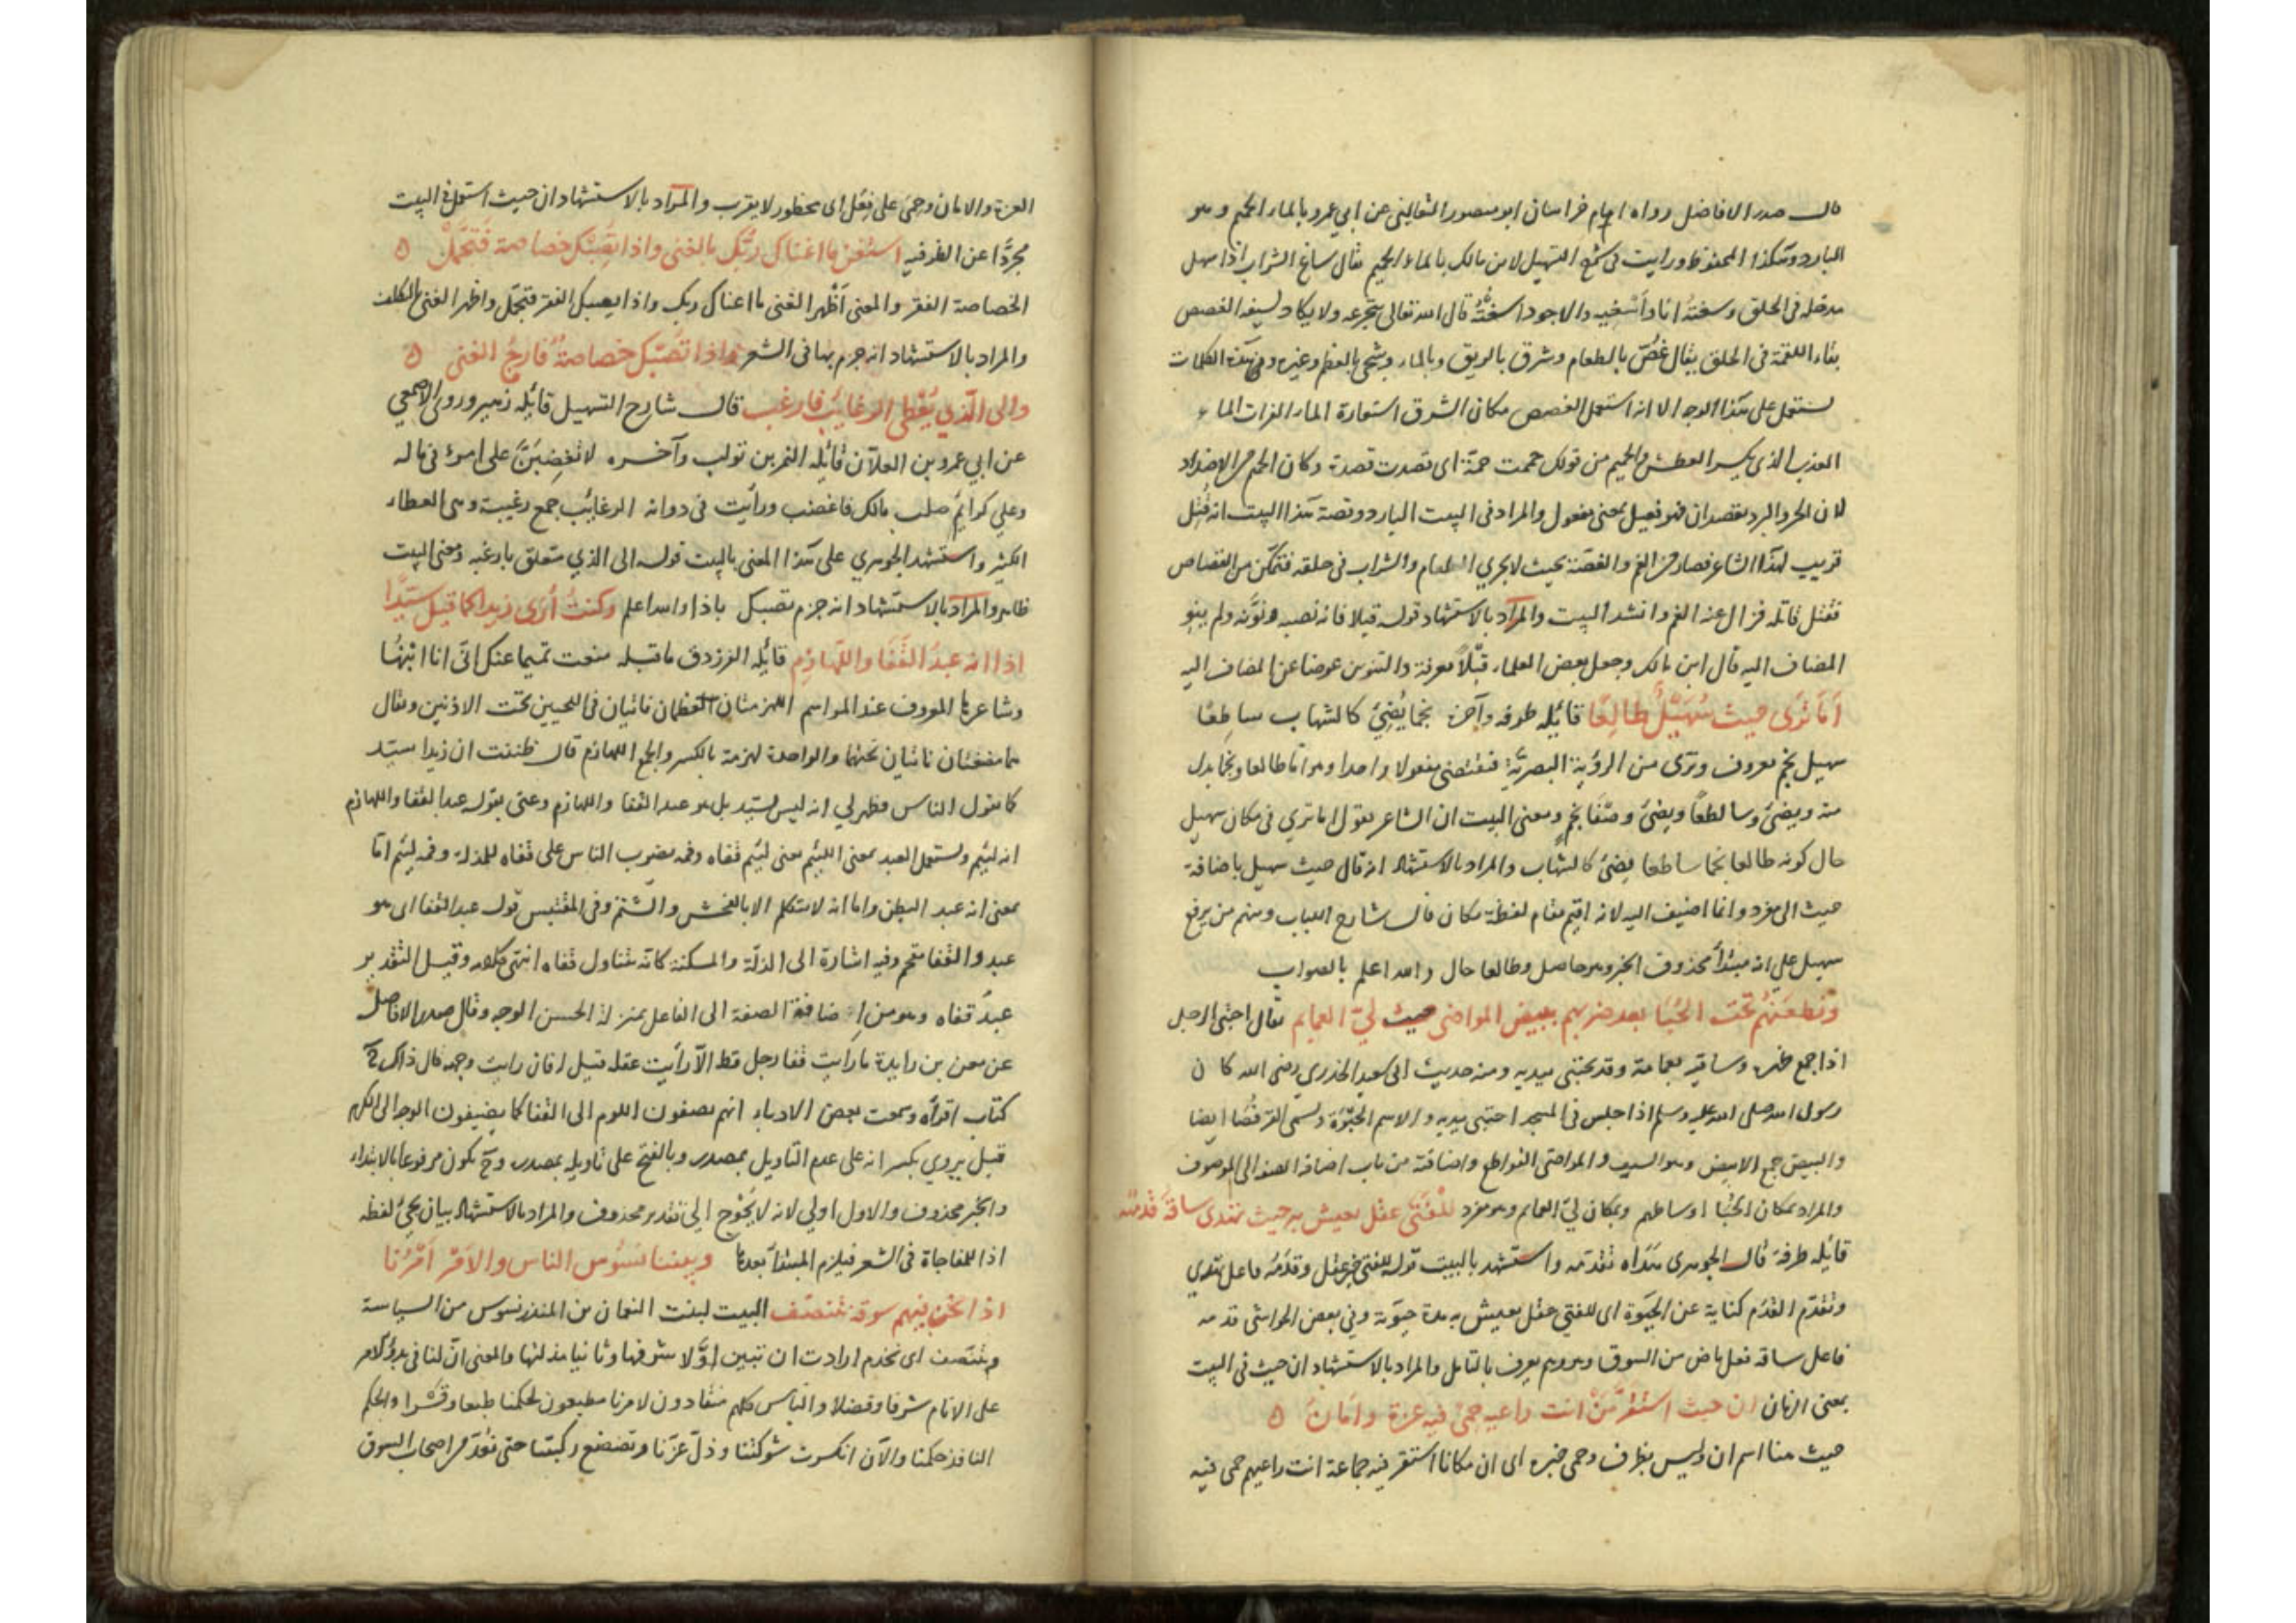 قال صدر الافاضل رواه امام خراسان ابو منصور الثعالبى عن ابي عمرو بالماء الحميم وهو
البارد وهكذا المحفوظ ورايت فى شرح التسهيل لابن مالك بالماء الحميم يقال ساغ الشراب اذا سهل
مدخله فى الحلق وسغته انا واسغيه والاجود اسغته قال الله تعالى يتجرعه ولا يكاد يسيغه الغصص
بقاء اللقمة فى الحلق يقال غص بالطعام وشرق بالريق وبالماء وشجى بالعظم وغيره وفى هذه الكلمات
يستعمل على هذا الوجه الا انه استعمل الغصص مكان الشرق استعارة الماء الفرات الماء
العذب الذي يكسر العطش والحميم من قولك حممت حمة اى قصدت قصدة وكان الحميم من الاضداد
لان الحر والبرد يقصدان فهو فعيل بمعنى مفعول والمراد فى البيت البارد وقصة هذا البيت انه قتل
قريب لهذا الشاعر فصار من الغم والغصة بحيث لا يجري الطعام والشراب فى حلقه فتمكن من القصاص
فقتل قاتله فزال عنه الغم وانشد البيت والمراد بالاستشهاد قوله قبلا فانه نصبه ونونه ولم ينو
المضاف اليه قال ابن مالك وجعل بعض العلماء قبلاً معرفة والتنوين عوضا عن المضاف اليه
أمَا تَرَى حيث سُهَيْلٌ طالِعًا قائله طرفه وآخره نجما يُضِئُ كالشهاب ساطِعًا
سهيل نجم معروف وترى من الرؤية البصرية فتقتضى مفعولا واحدا وهو اما طالعا ونجما بدل
منه ويضئ وساطعاً ويضئ وصفا نجم ومعنى البيت ان الشاعر يقول اما تري فى مكان سهيل
حال كونه طالعا نجما ساطعا يضئ كالشهاب والمراد بالاستشهاد انه قال حيث سهيل باضافة
حيث الى مفرد وانما اضيف اليه لانه اقيم مقام لفظة مكان قال شارح اللباب ومنهم من يرفع
سهيل على انه مبتدأ محذوف الخبر وهو حاصل وطالعا حال والله اعلم بالصواب
ونَطعَنُهُم تحت الحُبَا بعد ضربهم ببيض المواضى حيث ليّ العمايم يقال احتبى الرجل
اذا جمع ظهره وساقيه بعمامة وقد يحتبى بيديه ومنه حديث ابى سعيد الخدري رضى الله كان
رسول الله صلى الله عليه وسلم اذا جلس فى المسجد احتبى بيديه والاسم الحبوة وتسمى القرفصا ايضا
والبيض جمع الابيض وهو السيف والمواضى القواطع واضافته من باب اضافة الصفة الى الموصوف
والمراد بمكان الحُبا اوساطهم وبمكان ليّ العمايم وهو مفرد للفَتَى عقل يعيش به حيث تهدى ساقَه قَدَمُه
قائله طرفة قال الجوهرى هداه تقدمه واستشهد بالبيت قوله للفتى خبر عقل وقدمه فاعل تهدي
وتقدم القدم كناية عن الحيوة اى للفتى عقل يعيش به مدة حيوته وفي بعض الحواشى قدمه
فاعل ساقه فعل ماض من السوق وهو وهم يعرف بالتامل والمراد بالاستشهاد ان حيث فى البيت
بمعنى الزمان ان حيث استقرَّ مَنْ انت راعيه حمىً فيه عزة وامانُ
حيث هنا اسم ان وليس بظرف وحمى خبره اى ان مكانا استقر فيه جماعة انت راعيهم حمى فيه
العزة والامان وحمى على فعل اى محظور لا يقرب والمراد بالاستشهاد ان حيث استعمل فى البيت
مجردًا عن الظرفيه استغن ما اغناك ربُّك بالغنى واذا تُصِبْك خصاصة فَتجمَّلْ
الخصاصة الفقر والمعنى أظهر الغنى ما اغناك ربك واذا يصبك الفقر فتجمل واظهر الغنى بالتكلف
والمراد بالاستشهاد انه جزم بها فى الشعر واذا تصبك خصاصةٌ فارجُ الغنى
والى الذي يُعْطى الرغايب فارغب قال شارح التسهيل قائله زهير وروى الاصمعي
عن ابي عمرو بن العلا ان قائله النمر بن تولب وآخره لا تغضبَنَّ على امرئ فى ماله
وعلي كرائم صلب مالك فاغضب ورأيت فى دوانه الرغائب جمع رغيبة وهى العطاء
الكثير واستشهد الجوهري على هذا المعنى بالبيت قوله الى الذي متعلق بارغب ومعنى البيت
ظاهر والمراد بالاستشهاد انه جزم تصبك باذا والله اعلم وكنتُ أُرى زيدا كما قيل سيّدًا
اذا انه عبدُ القَفَا واللَّهازم قائله الفرزدق ما قبله منعت تميما عنك انّى انا ابنها
وشاعرها المعروف عند المواسم اللهزمتان العظمان ناتيان فى اللحيين تحت الاذنين ويقال
هما مضغتان ناتيان تحتهما والواحدة لهزمة بالكسر والجمع اللهازم قال ظننت ان زيدا سيد
كما تقول الناس فظهر لي انه ليس بسيد بل هو عبد القفا واللهازم وعنى بقوله عبد القفا واللهازم
انه لئيم ويستعمل العبد بمعنى اللئيم معنى لئيم قفاه وفمه يضرب الناس على قفاه للمذلة وفمه لئيم اما
بمعنى انه عبد البطن واما انه لا يتكلم الا بالفحش والشتم وفى المقتبس قوله عبد القفا اى هو
عبد والقفا مقحم وفيه اشارة الى الذلة والمسكنة كانه يتناول قفاه انتهى كلامه وقيل التقدير
عبدٌ قفاه وهو من اضافة الصفة الى الفاعل بمنزلة الحسن الوجه وقال صدر الافاضل
عن معن بن زايدة ما رايت قفا رجل قط الا رأيت عقله قيل له فان رايت وجهه قال ذاك
كتاب اقرأه وسمعت بعض الادباء انهم يصفون اللوم الى القفا كما يضيفون الوجه الى الكرم
قيل يروي بكسر انه على عدم التاويل بمصدر وبالفتح على تاويله بمصدر وح يكون مرفوعا بالابتداء
والخبر محذوف والاول اولي لانه لا يُحْوِج الى تقدير محذوف والمراد بالاستشهاد بيان مجئ لفظة
اذا للمفاجاة فى الشعر فيلزم المبتدأ بعدها وبينا نسُوس الناس والامر امْرُنا
اذا نحن فيهم سوقة نتنصّف البيت لبنت النعمان بن المنذر نسوس من السياسة
ونتنصف اى نخدم ارادت ان تبين اوّلا شرفها وثانيا مذلتها والمعنى انّ لنا فى بدؤ الامر
على الانام شرفا وفضلا والناس كلهم منقادون لامرنا مطيعون لحكمنا طبعا وقَسْرا والحكم
النافذ حكمنا والآن انكسرت شوكتنا وذلّ عزّنا وتضعضع ركبتنا حتى نُعَدّ من اصحاب السوق